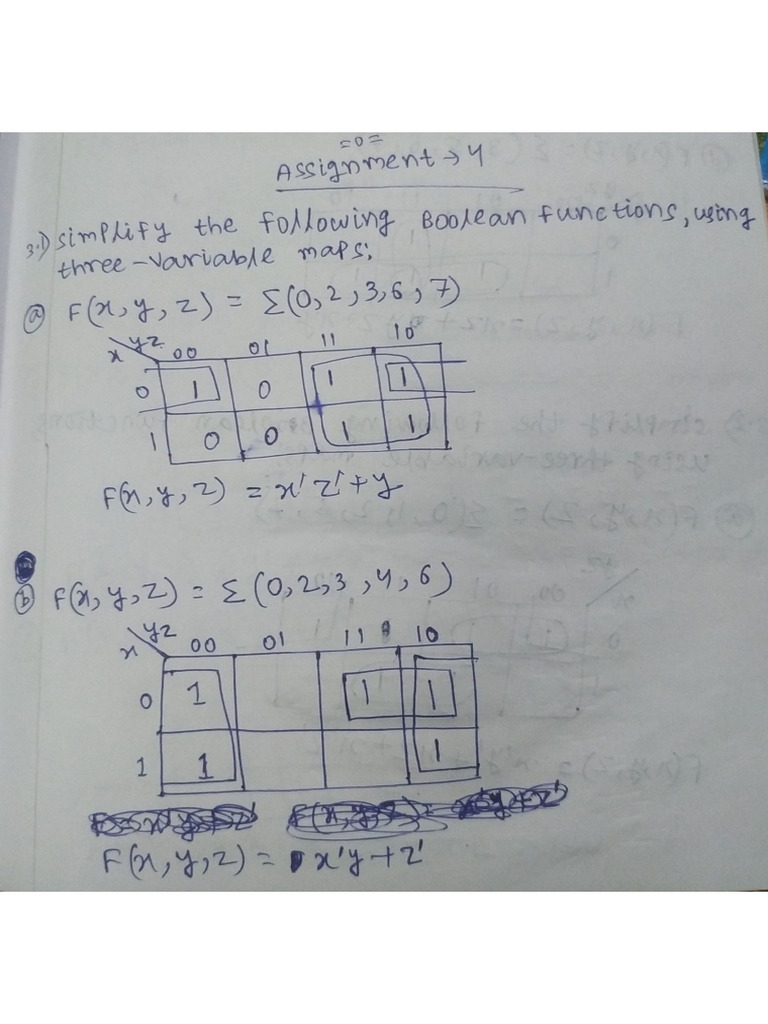 =0=
Assignment → 4
3.1) simplify the following Boolean functions, using
three-variable maps:
(a) F(x, y, z) = Σ(0, 2, 3, 6, 7)
x yz 00 01 11 10
0 1 0 1 1
1 0 0 1 1
F(x, y, z) = x'z' + y
(b) F(x, y, z) = Σ (0, 2, 3, 4, 6)
x yz 00 01 11 10
0 1 1 1
1 1 1
F(x, y, z) = x'y + z'